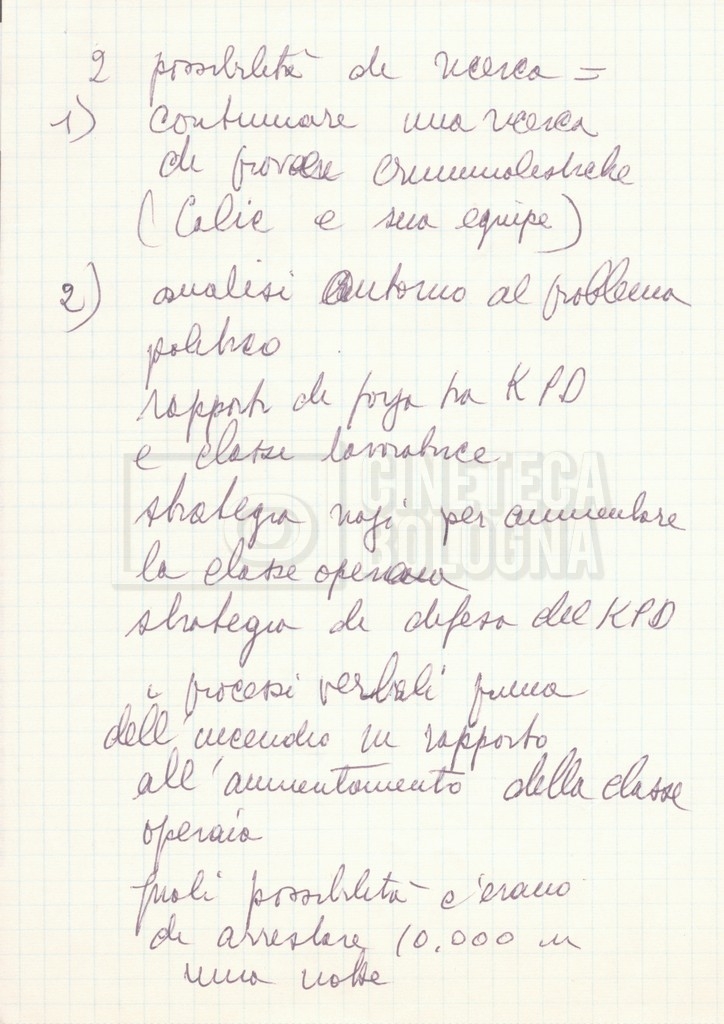 2 possibilità di ricerca =
1) continuare una ricerca
di prove criminalistiche
(Calic e sua equipe)
2) analisi intorno al problema
politico
rapporti di forza tra KPD
e classe lavoratrice
strategia nazi per
la classe operaia
strategia di difesa del KPD
i processi verbali prima
dell'incendio in rapporto
all' della classe
operaia
quali possibilità c'erano
di arrestare 10.000 in
una notte
CINETECA
BOLOGNA